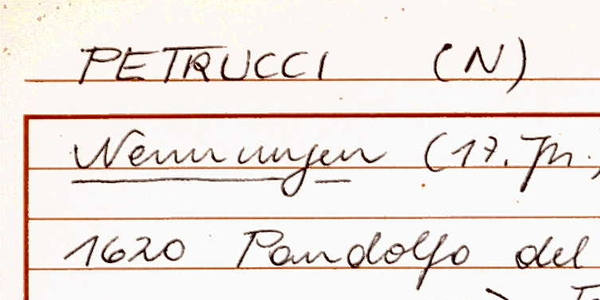 PETRUCCI (N)
Nennungen (17. Jh.)
1620 Pandolfo del